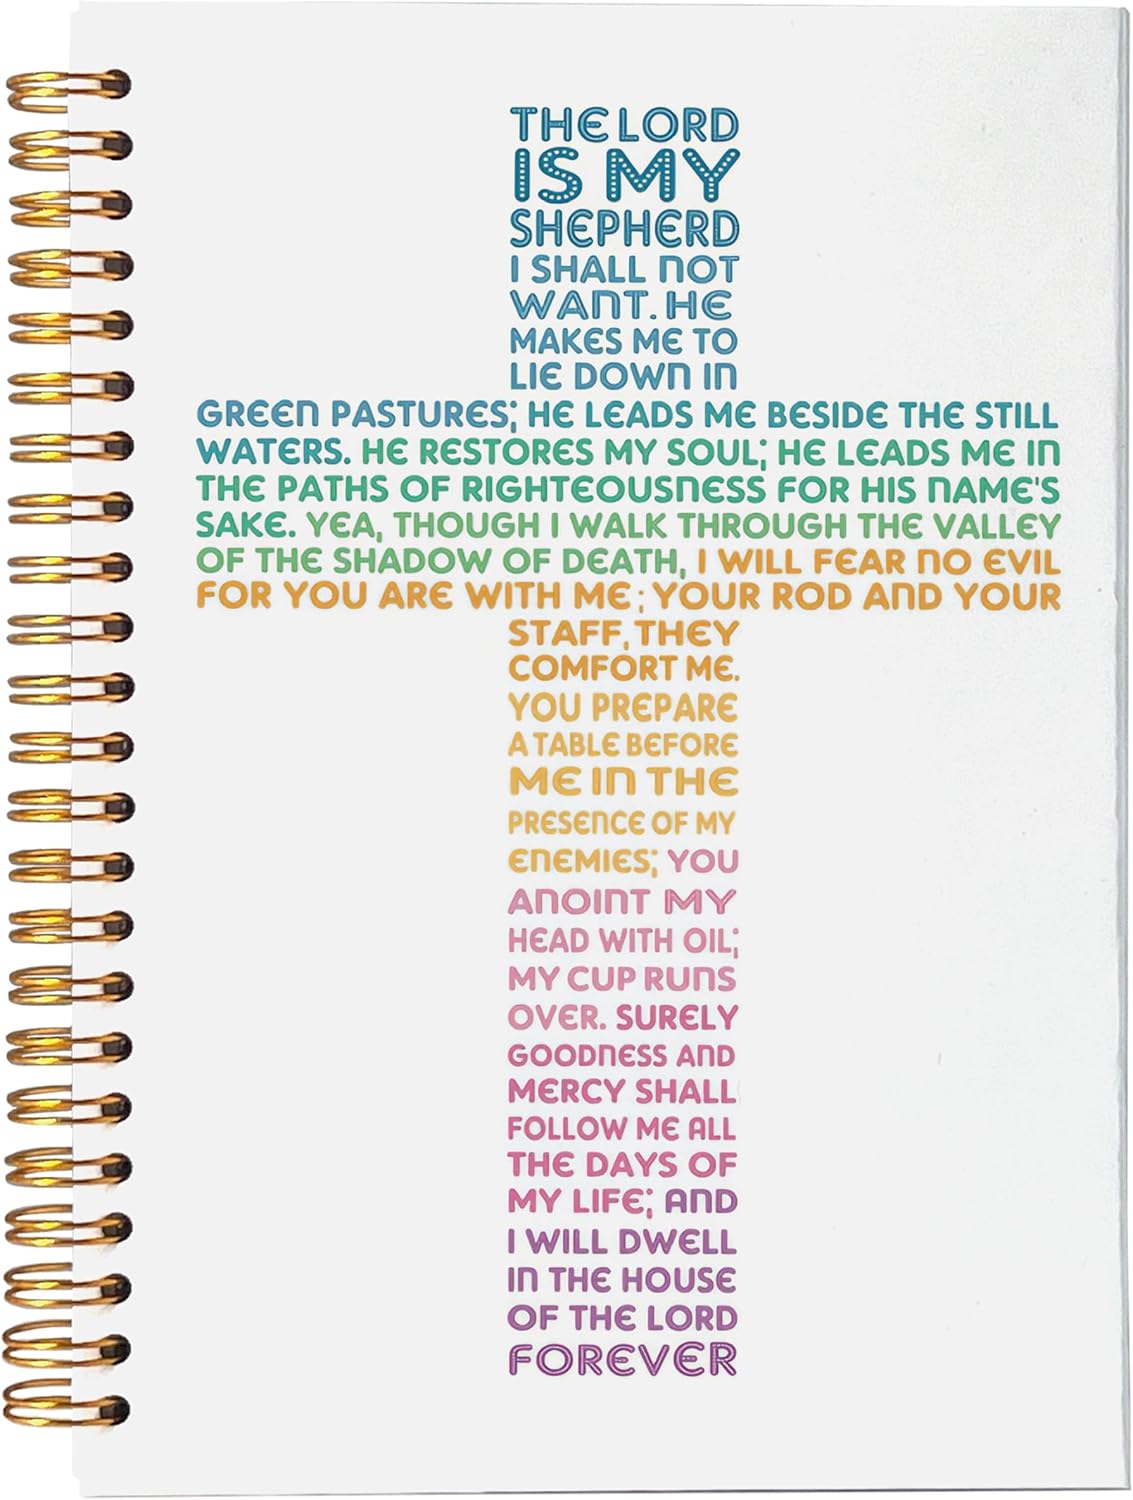 THE LORD
IS MY
SHEPHERD
I SHALL NOT
WANT. HE
MAKES ME TO
LIE DOWN IN
GREEN PASTURES; HE LEADS ME BESIDE THE STILL
WATERS. HE RESTORES MY SOUL; HE LEADS ME IN
THE PATHS OF RIGHTEOUSNESS FOR HIS NAME'S
SAKE. YEA, THOUGH I WALK THROUGH THE VALLEY
OF THE SHADOW OF DEATH, I WILL FEAR NO EVIL
FOR YOU ARE WITH ME; YOUR ROD AND YOUR
STAFF, THEY
COMFORT ME.
YOU PREPARE
A TABLE BEFORE
ME IN THE
PRESENCE OF MY
ENEMIES; YOU
ANOINT MY
HEAD WITH OIL;
MY CUP RUNS
OVER. SURELY
GOODNESS AND
MERCY SHALL
FOLLOW ME ALL
THE DAYS OF
MY LIFE; AND
I WILL DWELL
IN THE HOUSE
OF THE LORD
FOREVER